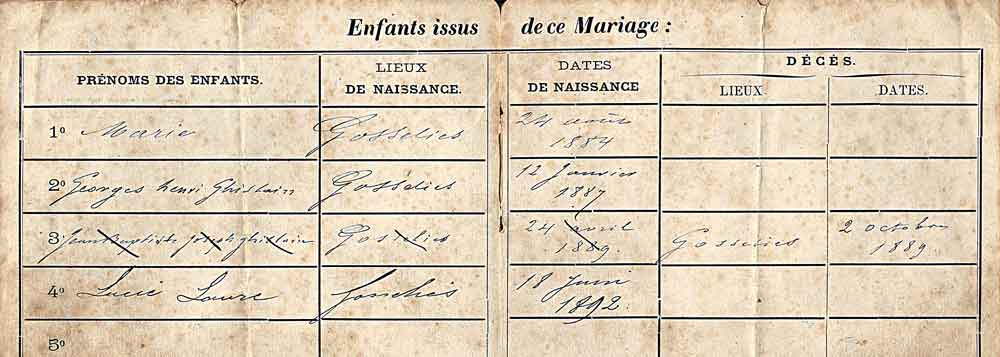 Enfants issus de ce Mariage :
PRÉNOMS DES ENFANTS.
LIEUX
DE NAISSANCE.
DATES
DE NAISSANCE
DÉCÉS.
LIEUX
DATES.
1º Marie Gosselies 24 août
1884
2º Georges henri Ghislain Gosselies 12 Janvier
1887
3º Jean Baptiste Joseph Ghislain Gosselies 24 avril
1889. Gosselies 2 octobre
1889.
4º Lucie Laure 18 Juin
1892.
5º